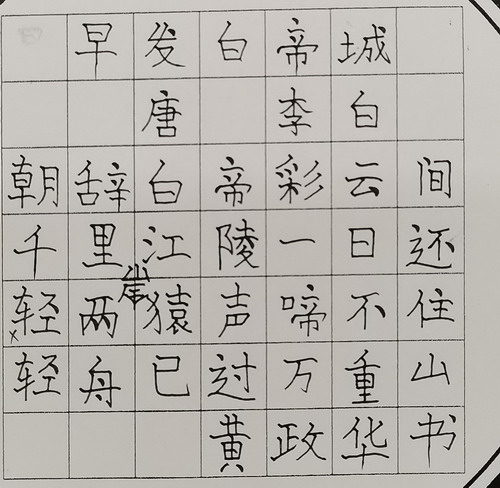 早发白帝城
唐 李白
朝辞白帝彩云间
千里江陵一日还
轻两岸猿声啼不住
轻舟已过万重山
黄政华书